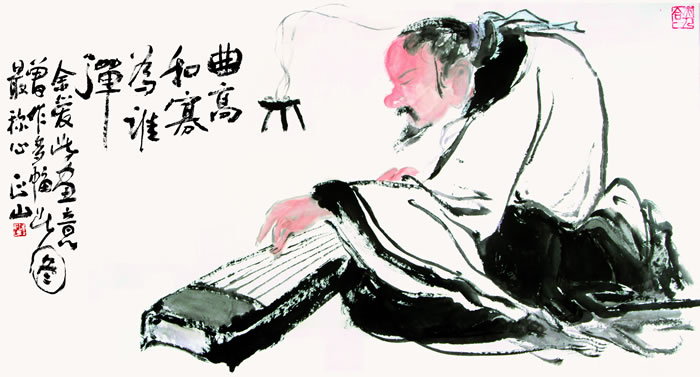 曲高
和寡
為誰
彈
余愛此畫意
曾作多幅此图
最称心 正山